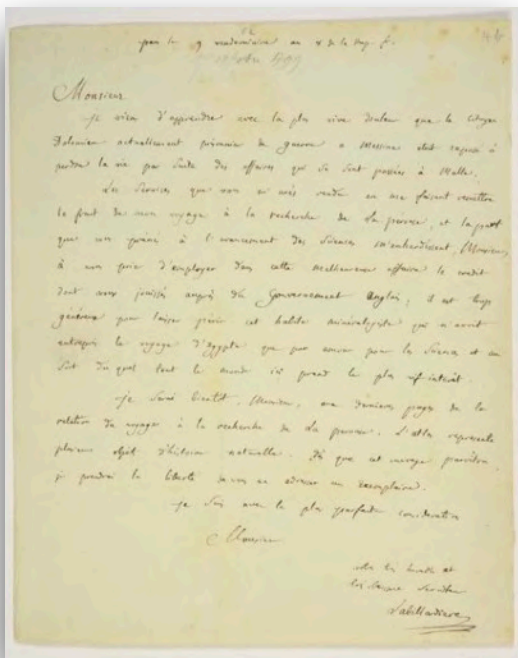 paris le 9 vendemiaire an 8 de la rep. f.
octobre 1799
46
Monsieur
je viens d'apprendre avec la plus vive douleur que le citoyen
Dolomieu actuellement prisonnier de guerre a Messine etoit exposé à
perdre la vie par suite des affaires qui se sont passées à Malte.
Les services que vous m'avés rendu en me faisant remettre
le fruit de mon voyage à la recherche de La perouse, et la part
que vous prenés à l'avancement des Sciences m'enhardissent, Monsieur,
à vous prier d'employer dans cette malheureuse affaire le credit
dont vous jouissés auprès du Gouvernement Anglais, il est trop
généreux pour laisser périr cet habile minéralogiste qui n'avoit
entrepris le voyage d'egypte que par amour pour les Sciences et au
Sort du quel tout le monde ici prend le plus vif interêt.
je Vous bientôt, Monsieur, les dernieres pages de la
relation du voyage à la recherche de La perouse. L'atlas représente
plusieurs objets d'histoire naturelle. Dès que cet ouvrage paroîtra,
je prendrai la liberté de vous en adresser un exemplaire.
je Suis avec la plus parfaite consideration
Monsieur
votre très humble et
très obeissant Serviteur
Labillardiere